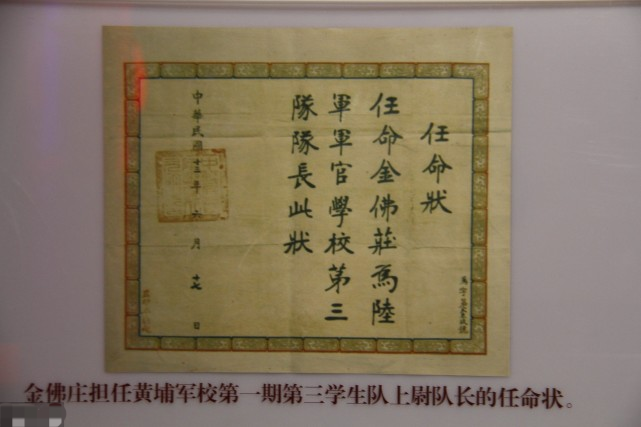 任命狀
任命金佛莊為陸
軍軍官學校第三
隊隊長此狀
中華民國十三年六月十七日
金佛庄担任黄埔军校第一期第三学生队上尉队长的任命状。